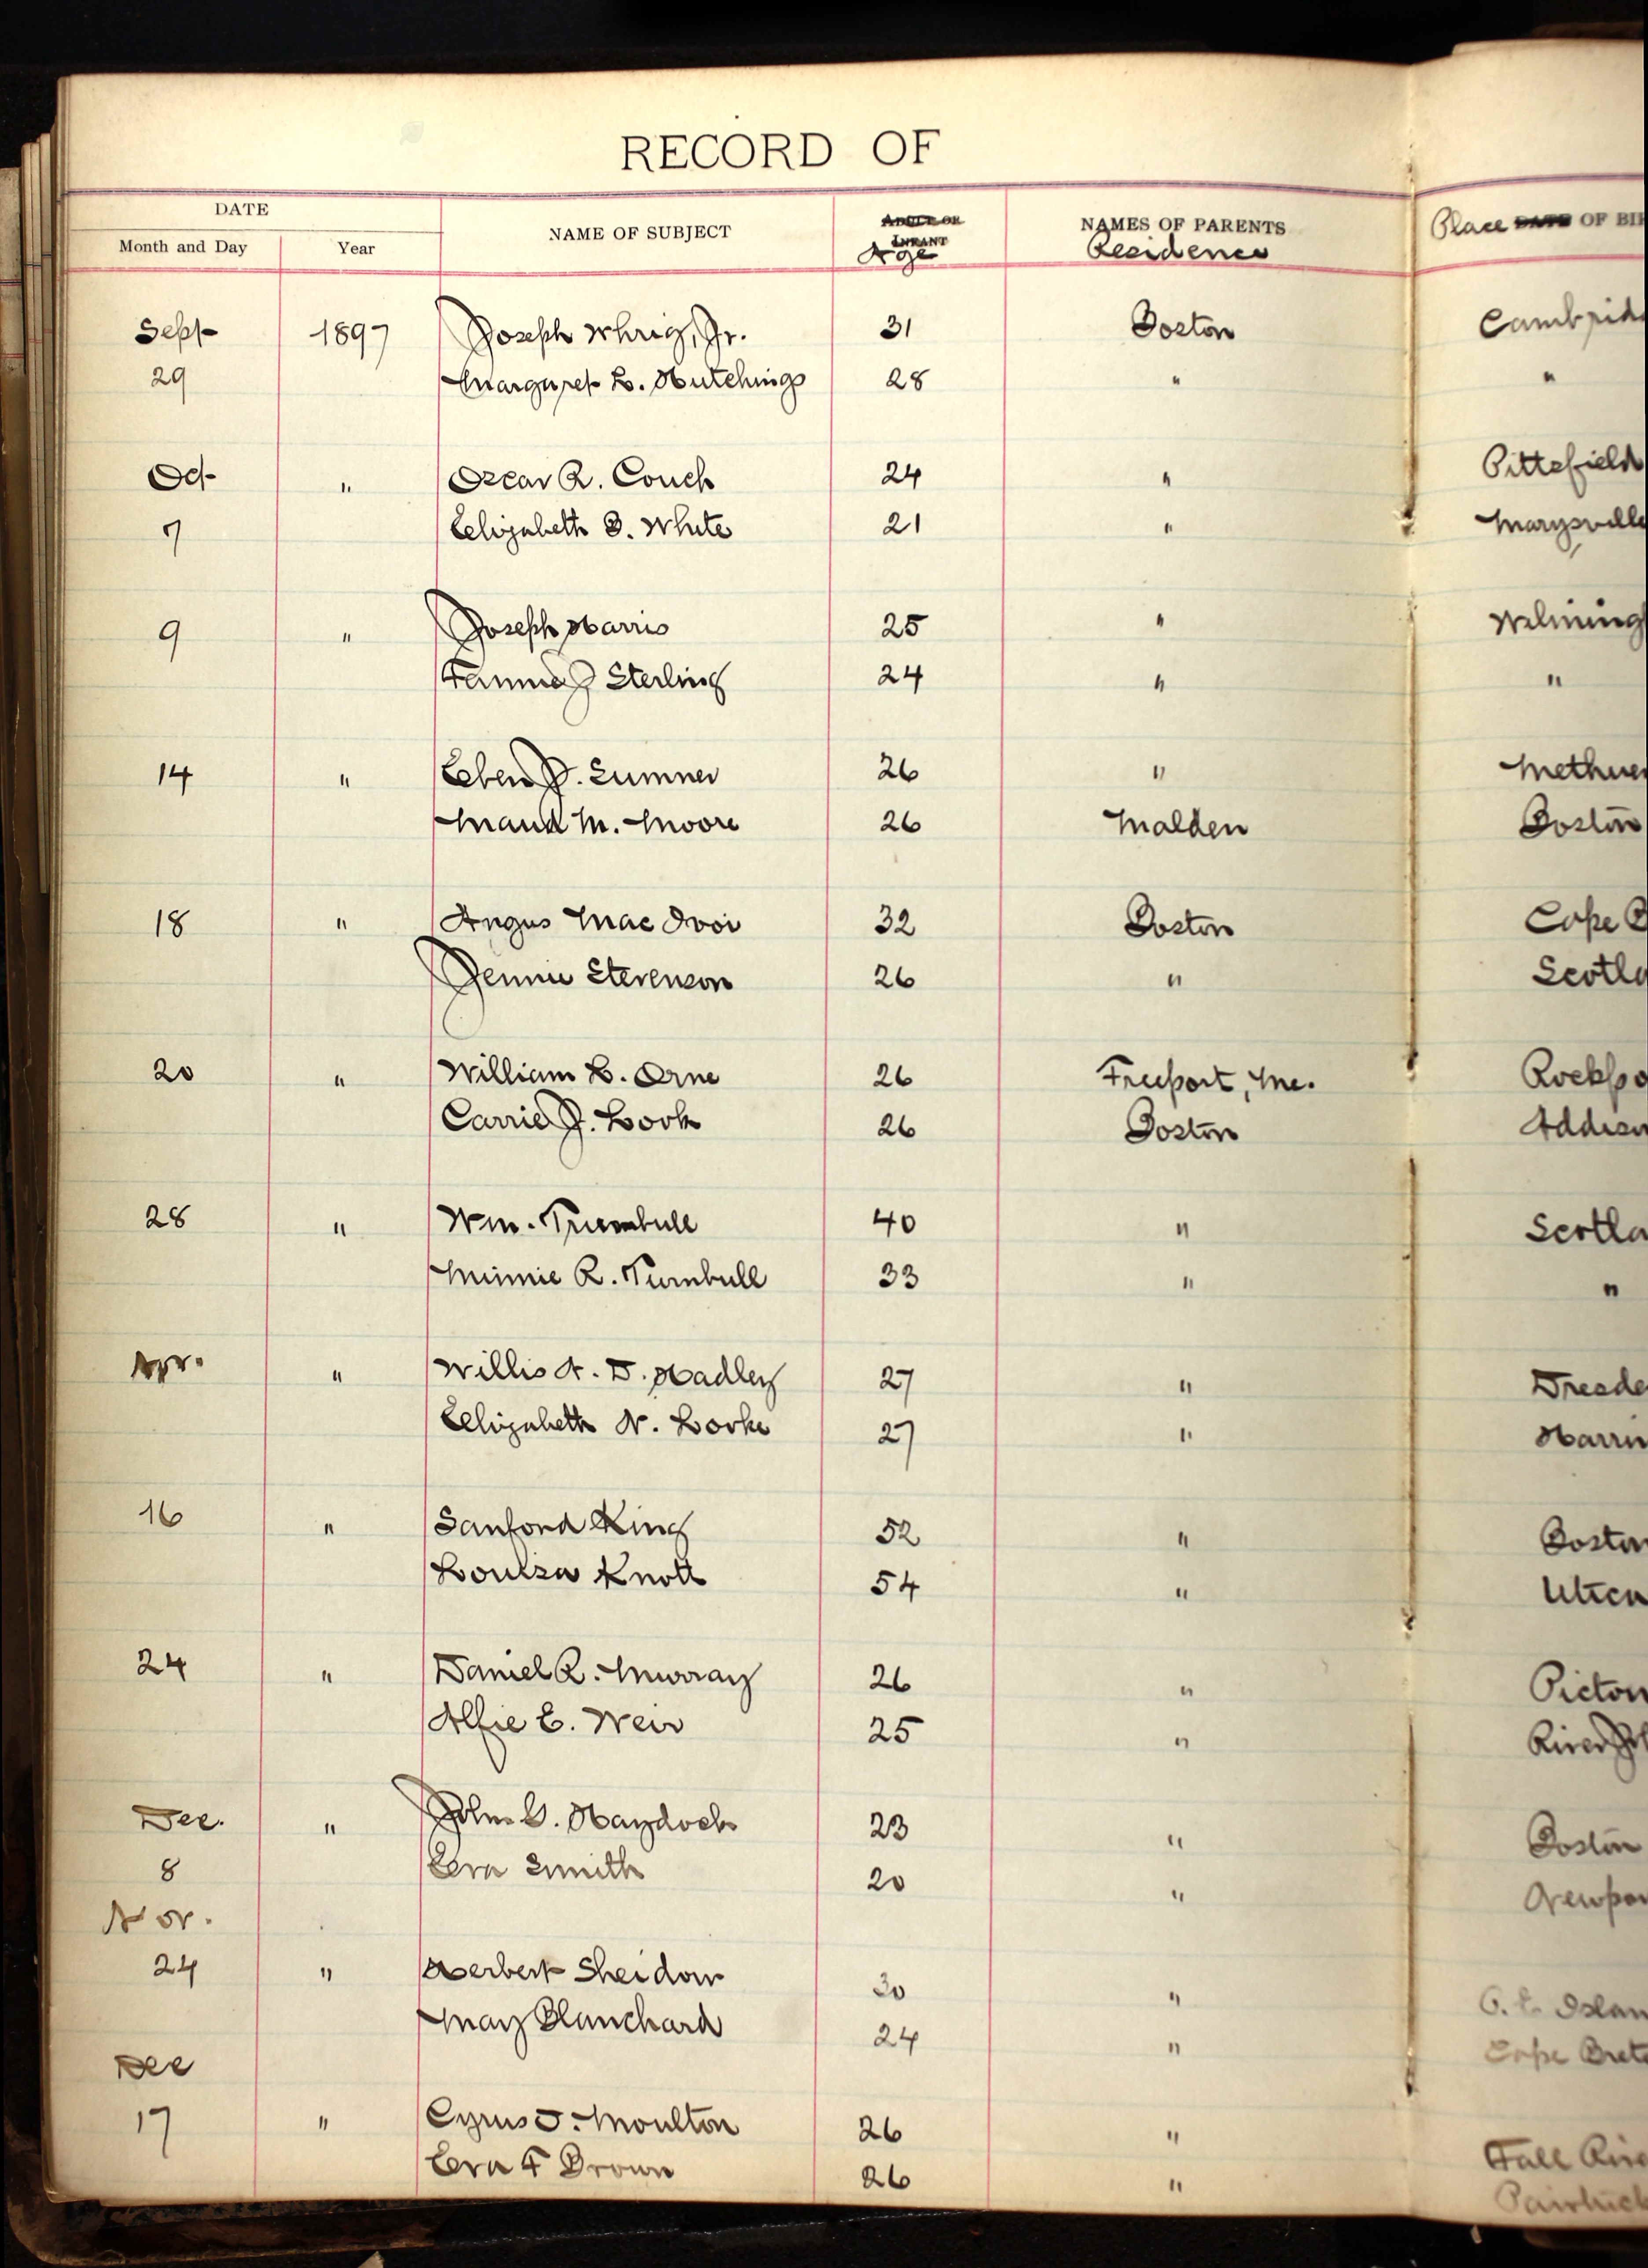 RECORD OF
DATE NAME OF SUBJECT ADULT OR INFANT NAMES OF PARENTS Place DATE OF BI
Month and Day Year Age Residence
Sept 1897 Joseph Uhrig, Jr. 31 Boston Cambrid
29 Margaret L. Hutchings 28 " "
Oct " Oscar R. Couch 24 " Pittsfield
7 Elizabeth B. White 21 " Marysville
9 " Joseph Harris 25 " Wilming
Fannie J Sterling 24 " "
14 " Eben P. Sumner 26 " Methuen
Maud M. Moore 26 Malden Boston
18 " Angus Mac 32 Boston Cape B
Jennie Stevenson 26 " Scotla
20 " William L. Orne 26 Freeport, Me. Rockpo
Carrie J. Look 26 Boston Addison
28 " Wm. Turnbull 40 " Scotla
Minnie R. Turnbull 33 " "
Nov. " Willis A. D. Hadley 27 " Dresde
Elizabeth N. Locke 27 " Harri
16 " Sanford King 52 " Boston
Louisa Knott 54 " Utica
24 " Daniel R. Murray 26 " Pictou
Alfie E. Weir 25 " River Jo
Dec. " John G. Haydock 23 " Boston
8 Eva Smith 20 " Newpor
Nov.
24 " Herbert 30 " P. E. Islan
May Blanchard 24 " Cape Bret
Dec
17 " Cyrus J. Moulton 26 " Fall Riv
Eva F Brown 26 "